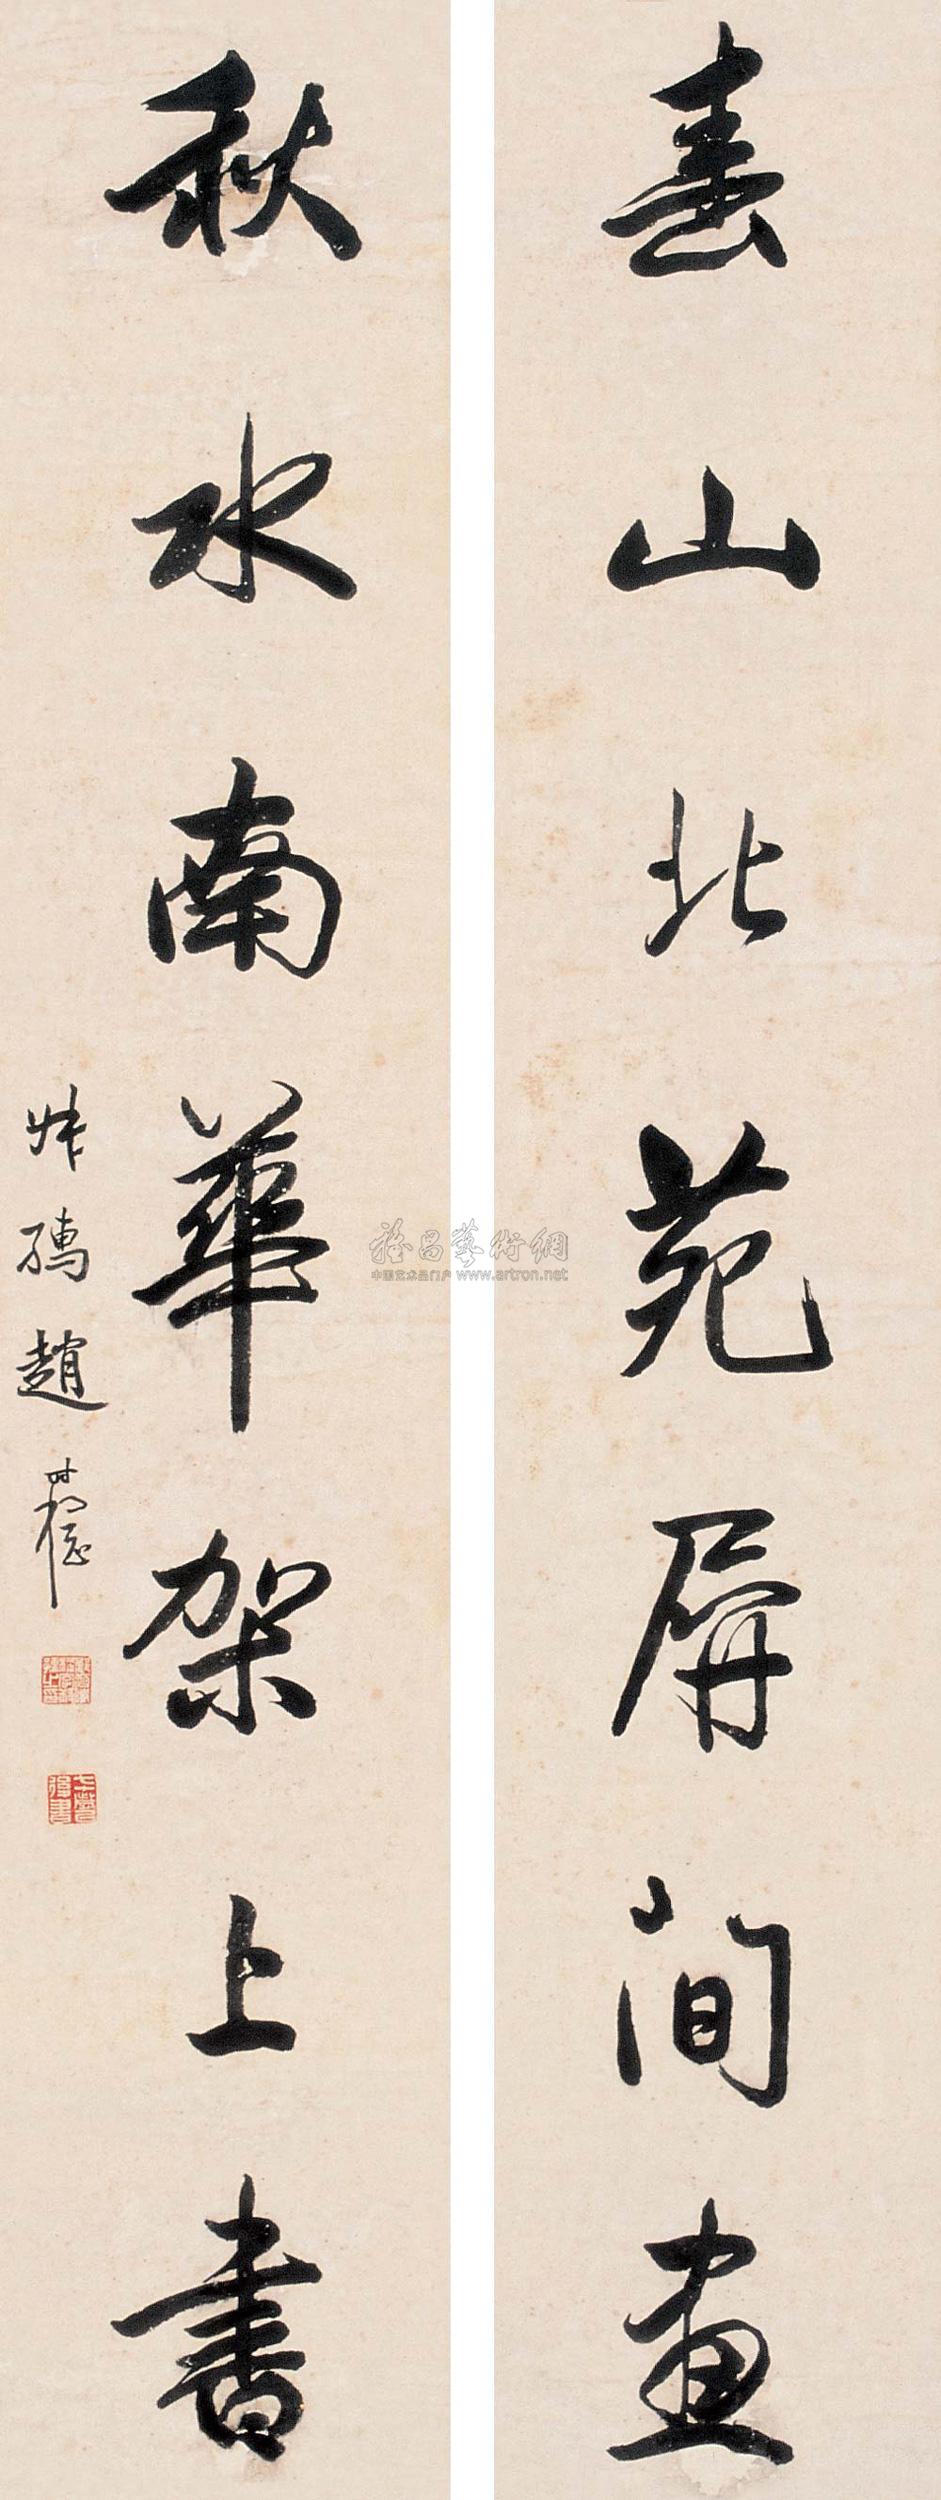 春山北苑屏間畫
秋水南華架上書
叔孺趙時棡
雅昌藝術網
中国艺术品门户 www.artron.net